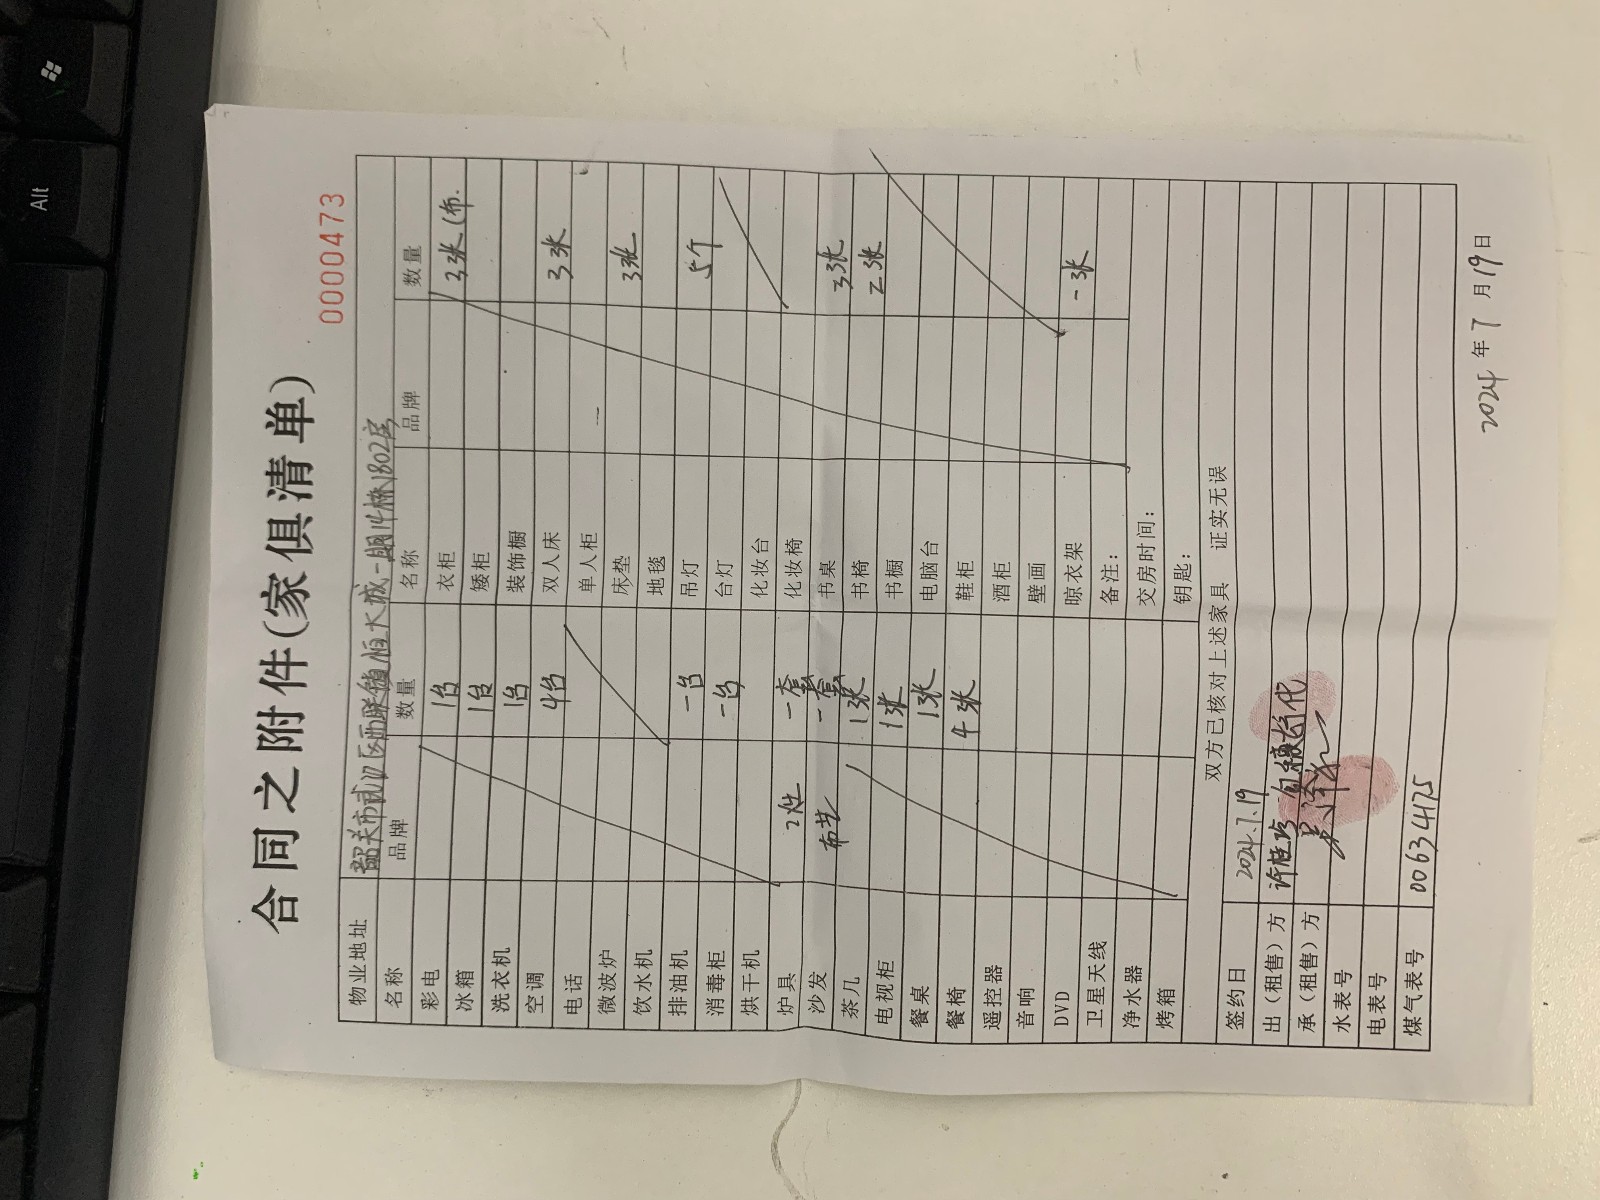 Alt
合同之附件(家俱清单)
0000473
物业地址 韶关市武江区西联镇恒大城一期14栋1802房
名称 品牌 数量 名称 品牌 数量
彩电 1台 衣柜 3张(布.
冰箱 1台 矮柜
洗衣机 1台 装饰橱
空调 4台 双人床 3张
电话 单人柜
微波炉 床垫 3张
饮水机 地毯
排油机 一台 吊灯 5个
消毒柜 一台 台灯
烘干机 化妆台
炉具 2灶 一套 化妆椅
沙发 布艺 一套 书桌 3张
茶几 1张 书椅 2张
电视柜 1张 书橱
餐桌 1张 电脑台
餐椅 4张 鞋柜
遥控器 酒柜
音响 壁画
DVD 晾衣架 一张
卫星天线 备注:
净水器 交房时间:
烤箱 钥匙:
双方已核对上述家具 证实无误
签约日 2024.7.19
出(租售)方 代
承(租售)方
水表号
电表号
煤气表号 00634175
2024年7月19日